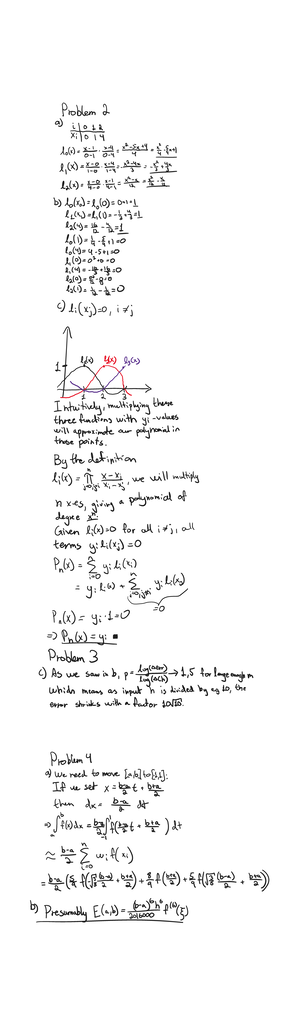 Problem 2
a)
i | 0 1 2
xi | 0 1 4
l₀(x) = (x-1)/(0-1) · (x-4)/(0-4) = (x²-5x+4)/4 = x²/4 - 5/4x + 1
l₁(x) = (x-0)/(1-0) · (x-4)/(1-4) = (x²-4x)/-3 = -x²/3 + 4x/3
l₂(x) = (x-0)/(4-0) · (x-1)/(4-1) = (x²-x)/12 = x²/12 - x/12
b) l₀(x₀) = l₀(0) = 0+1 = 1
l₁(x₁) = l₁(1) = -1/3 + 4/3 = 1
l₂(4) = 16/12 - 4/12 = 1
l₀(1) = 1/4 - 5/4 + 1 = 0
l₀(4) = 4-5+1 = 0
l₁(0) = 0²+0 = 0
l₁(4) = -16/3 + 16/3 = 0
l₂(1) = 1/12 - 1/12 = 0
c) li(xj) = 0, i ≠ j
l₁(x) l₂(x) l₃(x)
1
1 2 3
Intuitively, multiplying these
three functions with yi-values
will approximate our polynomial in
those points.
By the definition
li(x) = ∏ (x-xj)/(xi-xj), we will multiply
n x-es, giving a polynomial of
degree xⁿ.
Given li(x)=0 for all i≠j, all
terms yi li(xj) = 0
Pn(x) = Σ yi li(xi)
= yi li(x) + Σ yi li(xj)
=0
Pn(x) = yi · 1 + 0
=> Pn(x) = yi ■
Problem 3
c) As we saw in b, p = → 1,5 for large enough n
which means as input h is divided by eg 10, the
error shrinks with a factor 10√10.
Problem 4
a) We need to move [a,b] to [-1,1]:
If we set x = (b-a)/2 t + (b+a)/2
then dx = (b-a)/2 dt
=> ∫ f(x) dx = (b-a)/2 ∫ f((b-a)/2 t + (b+a)/2) dt
≈ (b-a)/2 Σ wi f(xi)
= (b-a)/2 (5/9 f(√3/5 (b-a)/2 + (b+a)/2) + 8/9 f((b+a)/2) + 5/9 f(√3/5 (b-a)/2 + (b+a)/2))
b) Presumably E(a,b) = (b-a)⁶h⁶/2016000 f⁽⁶⁾(ξ)